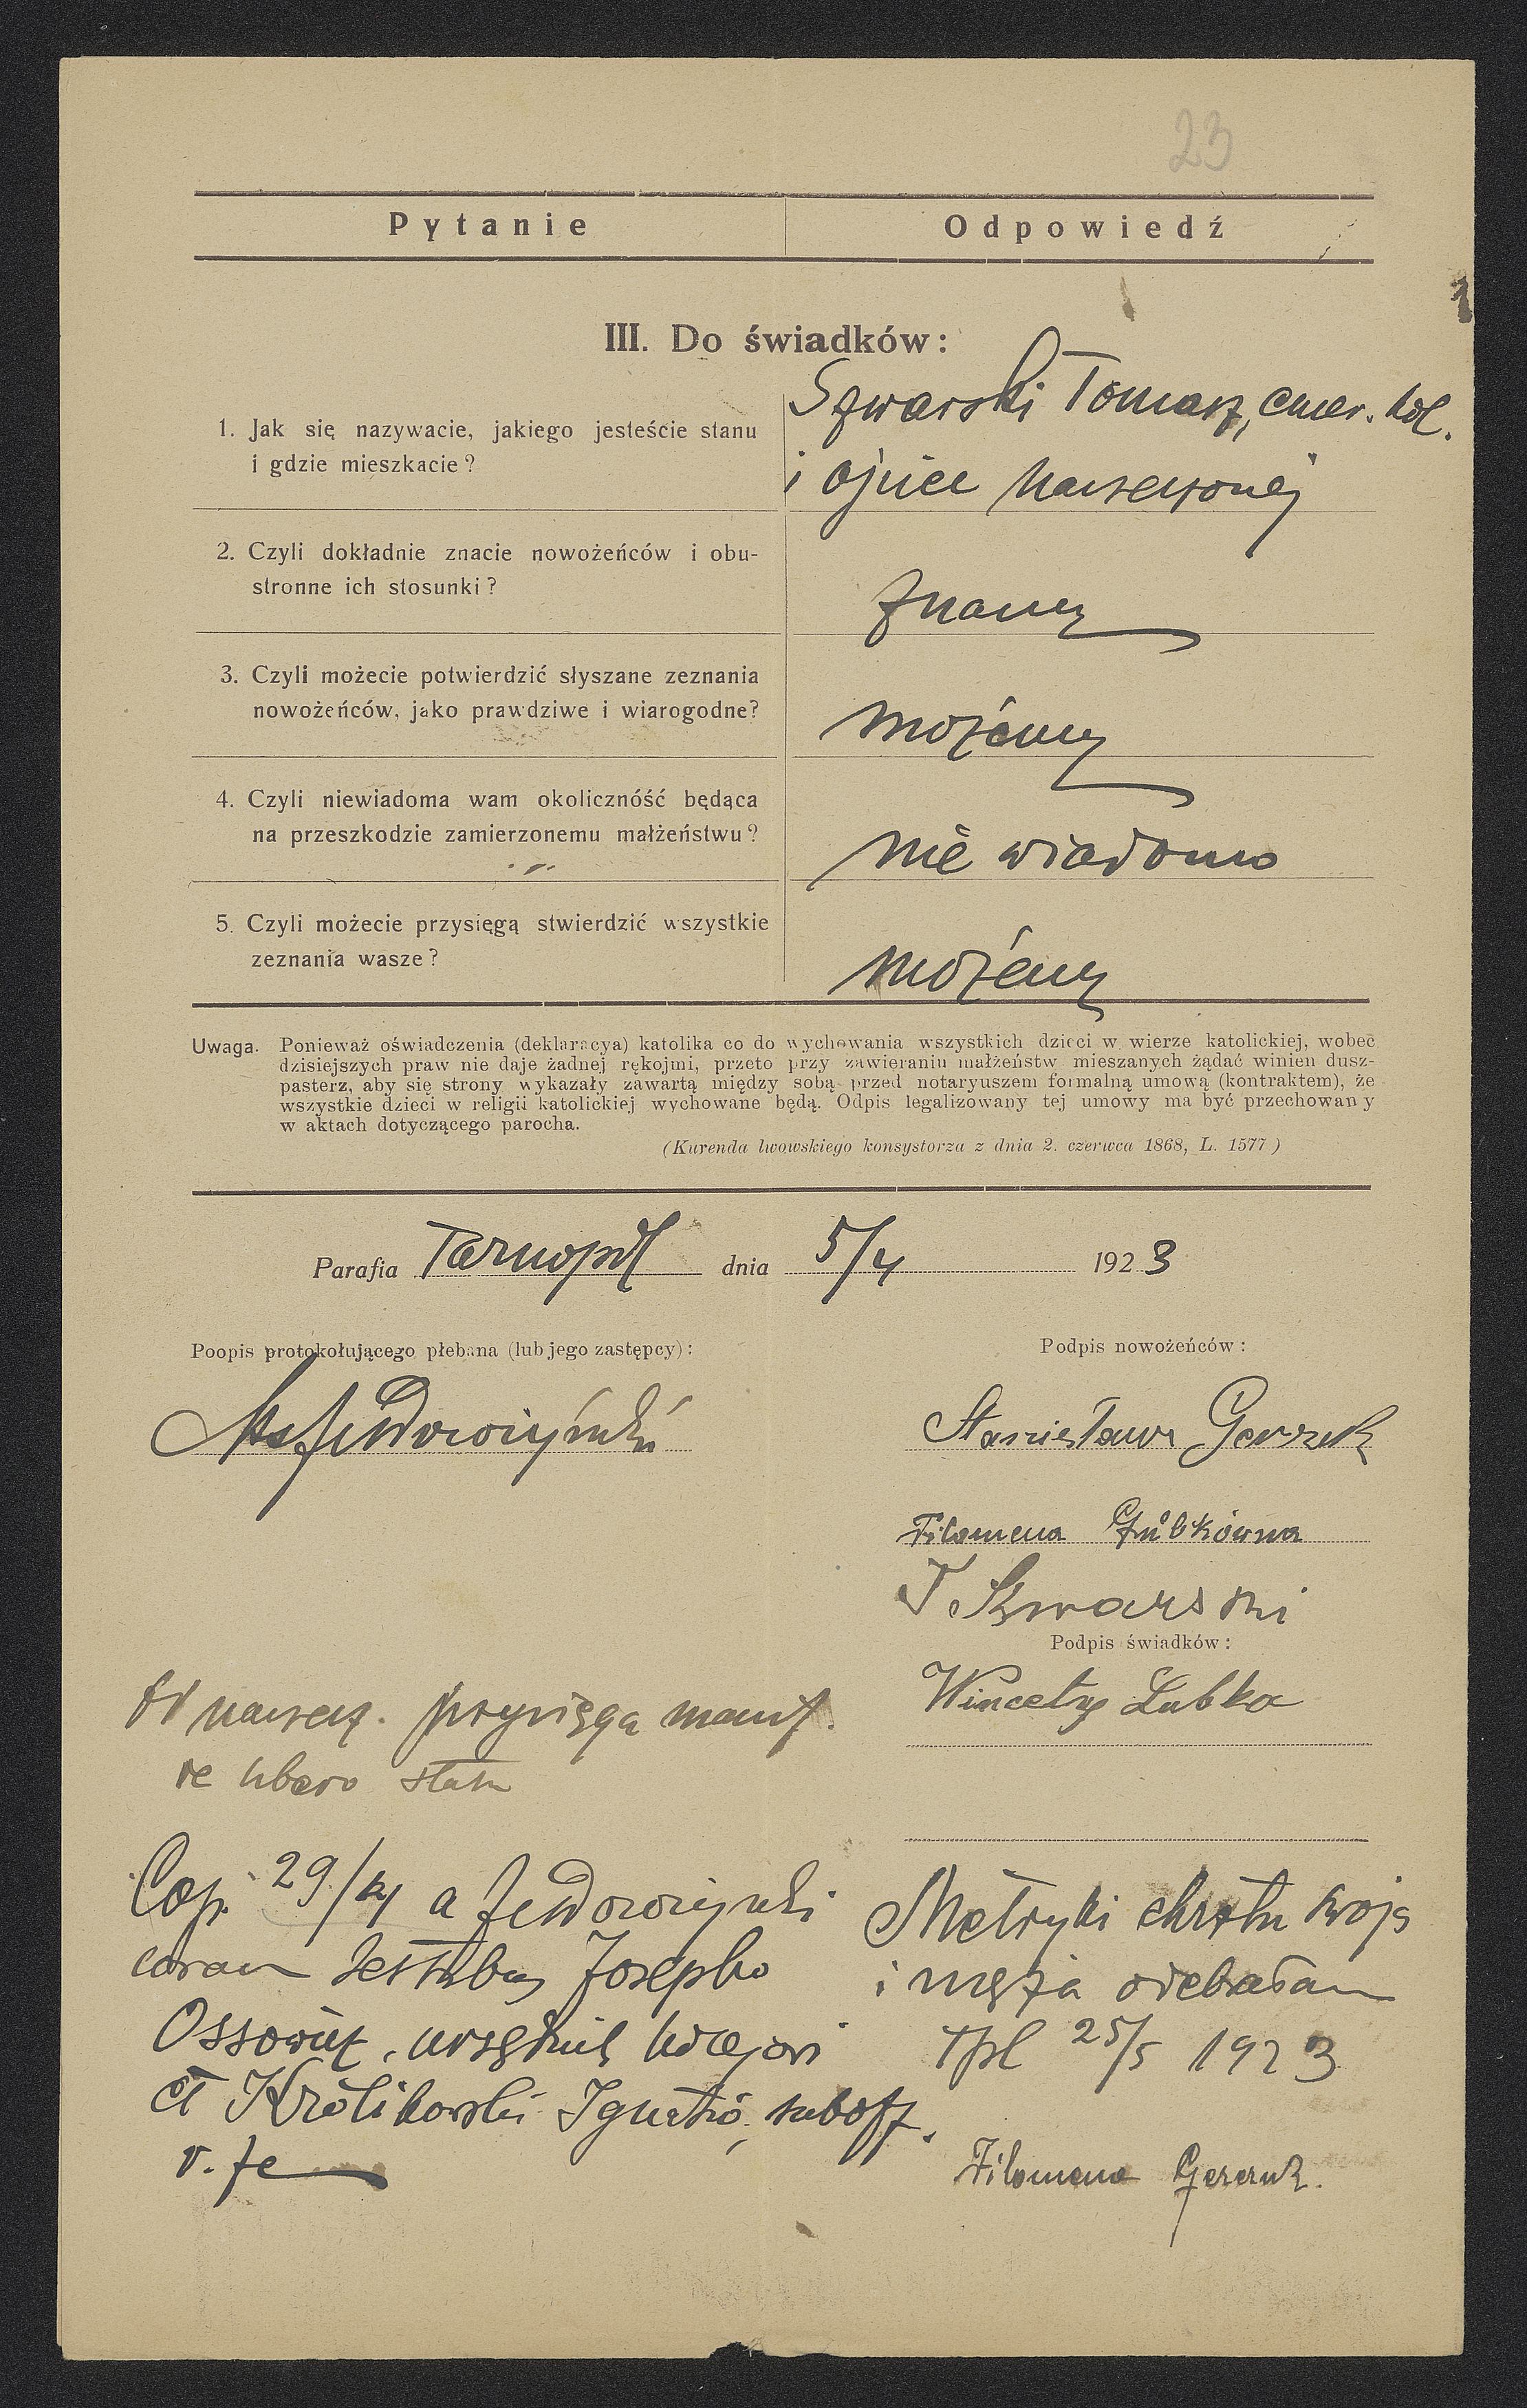 23
Pytanie
Odpowiedź
III. Do świadków:
1. Jak się nazywacie, jakiego jesteście stanu
i gdzie mieszkacie?
Szwarski Tomasz, emer. kol.
i ojciec narzeczonej
2. Czyli dokładnie znacie nowożeńców i obu-
stronne ich stosunki?
znamy
3. Czyli możecie potwierdzić słyszane zeznania
nowożeńców, jako prawdziwe i wiarogodne?
możemy
4. Czyli niewiadoma wam okolicznóść będąca
na przeszkodzie zamierzonemu małżeństwu?
nie wiadomo
5. Czyli możecie przysięgą stwierdzić wszystkie
zeznania wasze?
możemy
Uwaga. Ponieważ oświadczenia (deklaracya) katolika co do wychowania wszystkich dzieci w wierze katolickiej, wobec
dzisiejszych praw nie daje żadnej rękojmi, przeto przy zawieraniu małżeństw mieszanych żądać winien dusz-
pasterz, aby się strony wykazały zawartą między sobą przed notaryuszem formalną umową (kontraktem), że
wszystkie dzieci w religii katolickiej wychowane będą. Odpis legalizowany tej umowy ma być przechowany
w aktach dotyczącego parocha.
(Kurenda lwowskiego konsystorza z dnia 2. czerwca 1868, L. 1577)
Parafia Tarnopol dnia 5/4 1923
Poopis protokołującego plebana (lub jego zastępcy):
Podpis nowożeńców:
Stanisław
Filomena
T Szwarski
Podpis świadków:
Wincenty Lubka
narzecz. przysięga manif.
de libero statu
Cop. 29/4 a
coram testibus Josepho
urzędnik kolejowi
et Królikowski Ignatio, suboff.
Metryki chrztu swoją
i męża odebrałam
Tpl 25/5 1923
Filomena